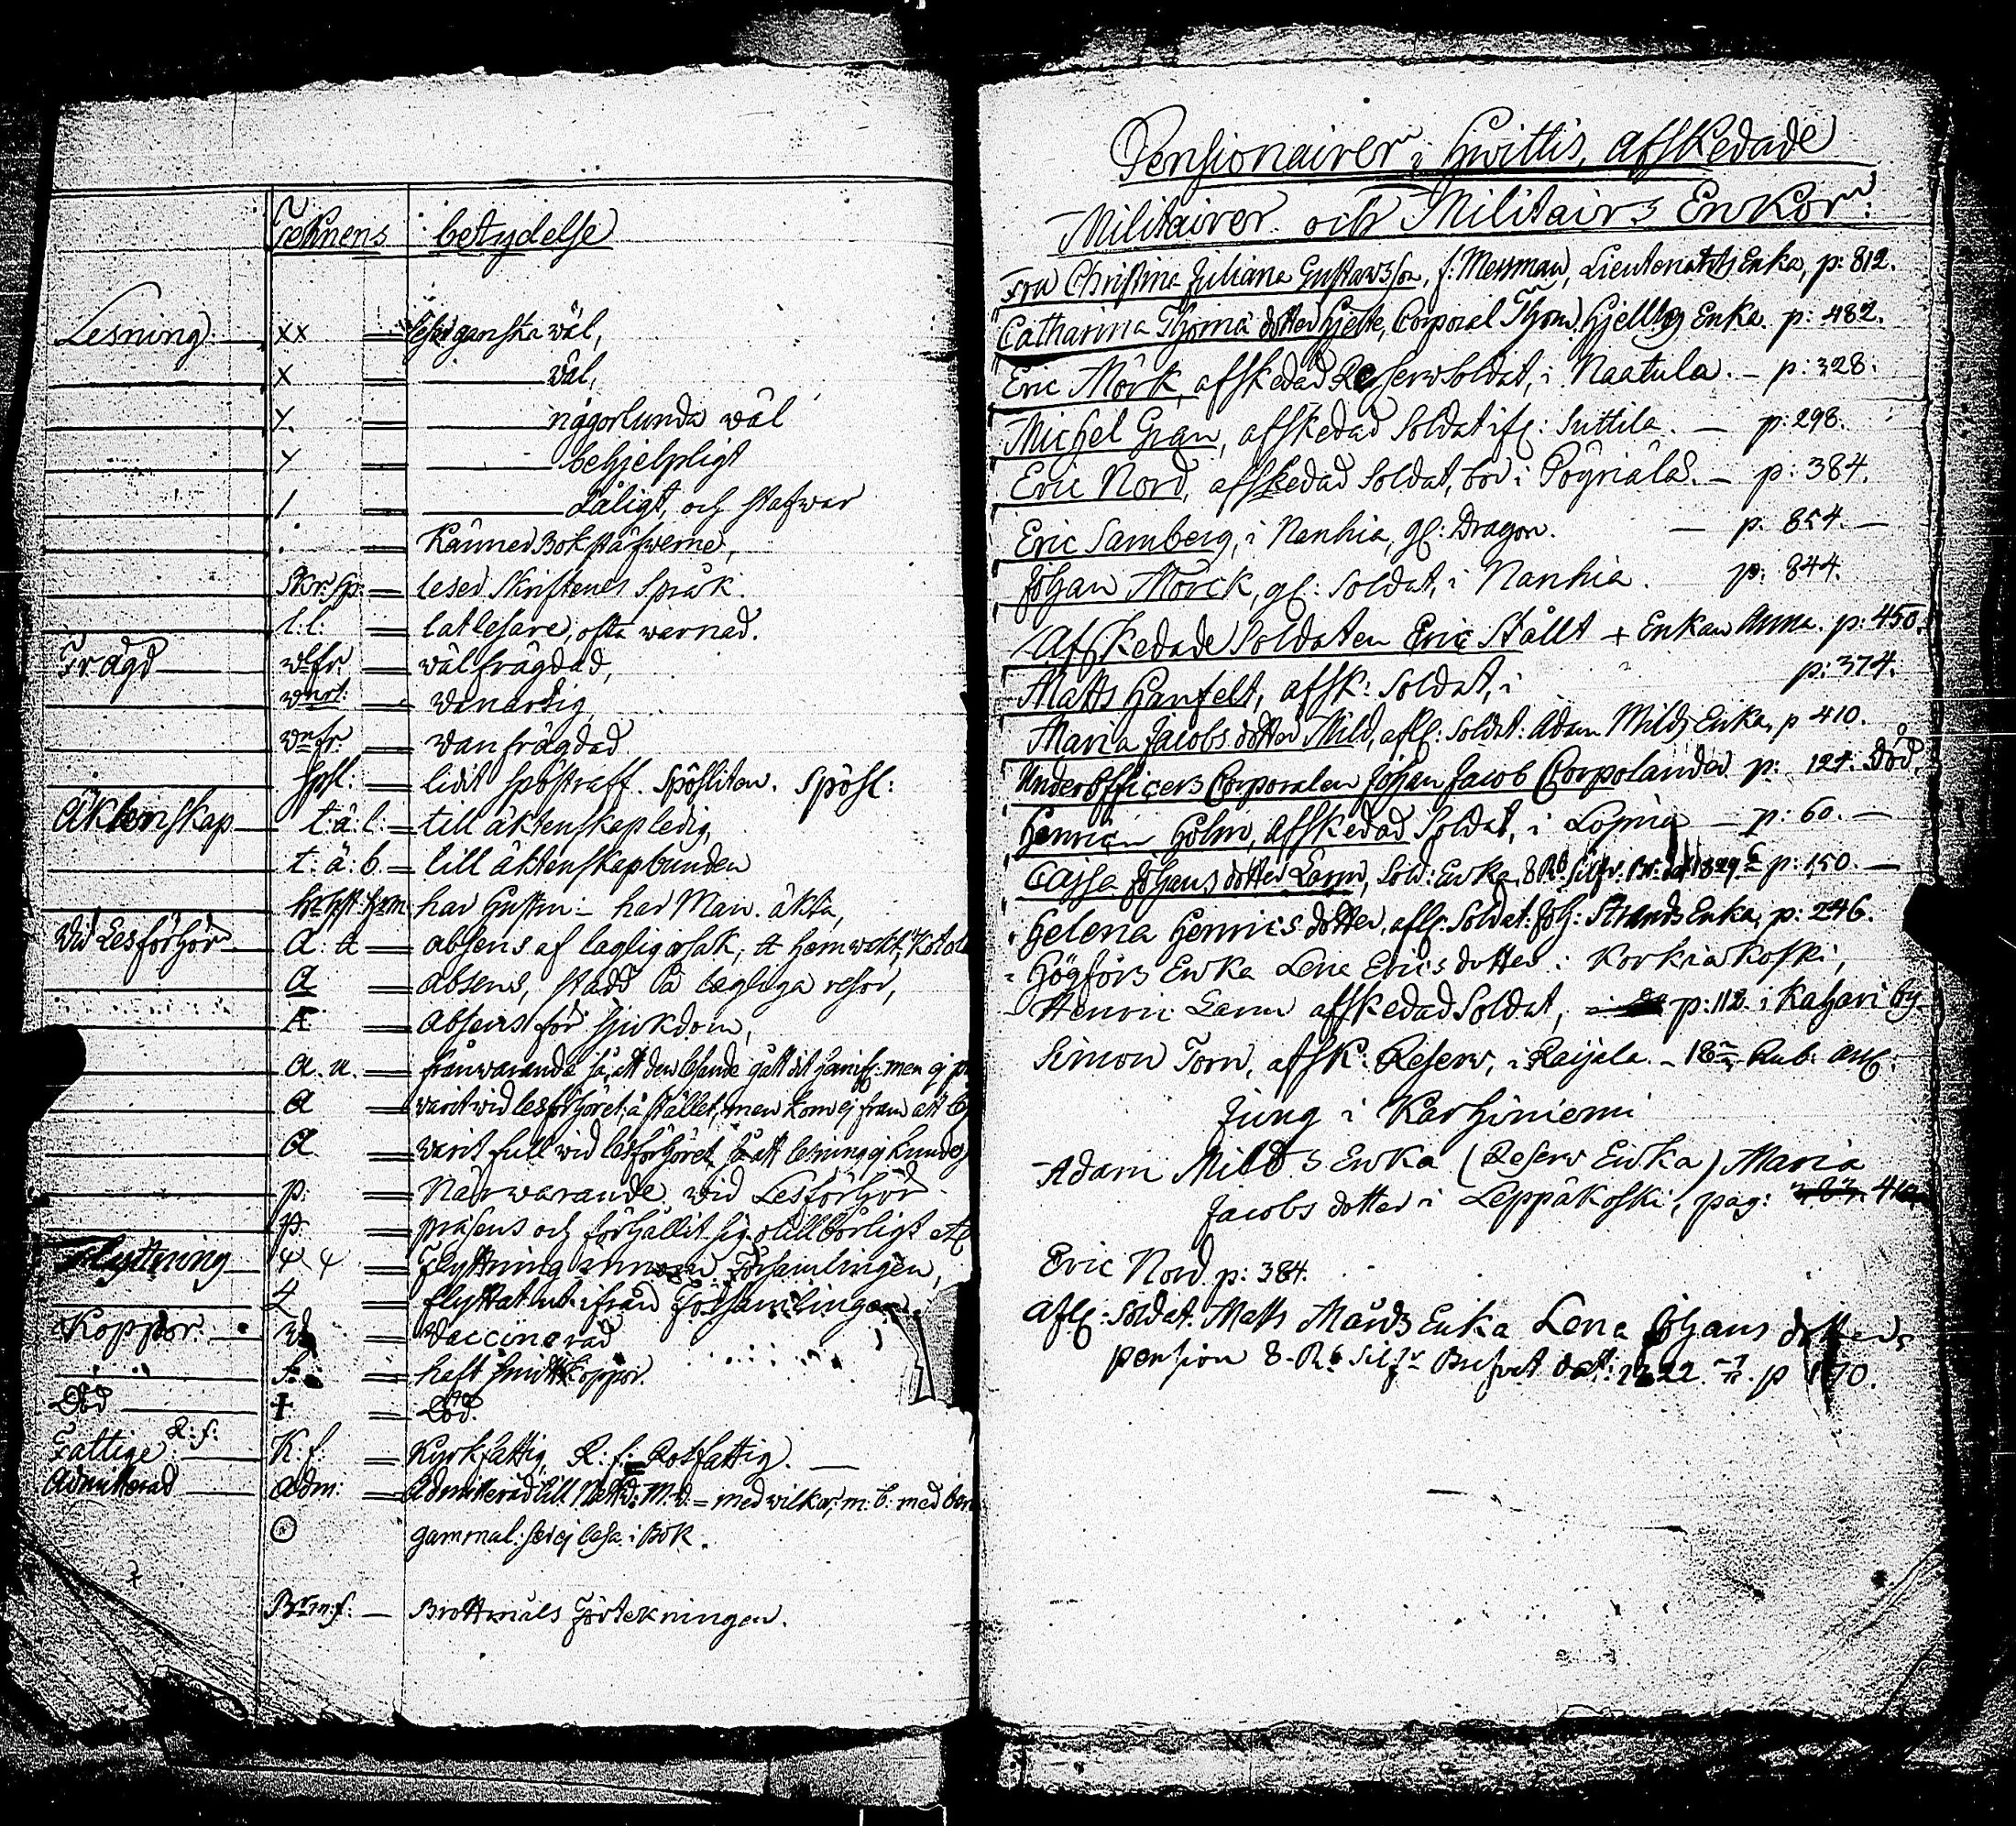 Teknens betydelse
Lesning: xx = leser ganska wäl,
x = wäl,
= någorlunda wäl
= behjelpligt
/ = dåligt, och stafwar
. = känner Bokstäfwerne,
Skr: sp: = leser Skriftenes språk.
l: l: = lat lesare, ofta warnad.
Frägd wfr = wälfrägdad,
wart: = wanartig
wnfr: = wanfrägdad
spsl: = lidit spöstraff. Spösliten. Spösl:
Äktenskap t: ä: l: = till äktenskap ledig,
t: ä: b. = till äktenskap bunden
har Hustru = har Man. äkta,
Vid Lesförhör a: = absens af laglig orsak, hemwakt,
a = absens, stadd på lagliga resor,
= absens för sjukdom,
a. u. = frånwarande så, att den lesande gått ut men ej
a = warit wid lesförhöret å stället, men kom ej fram att
a = warit full wid lesförhöret, så att lesning ej kunde
p: = Närwarande wid Lesförhör
p: = præsens och förhållit sig otillbörligt
Flyttning = Flyttning innom Församlingen,
= flyttat ut ifrån Församlingen
Koppor: = vaccinerad
s: = haft smittkoppor.
Död + = död.
Fattige R: f: K: f: = Kyrkfattig, R: f: = Rotfattig.
Admitterad adm: = Admitterad till Nattv: M: v: = med wilkor, m: b: med
gammal: ser ej lesa i Bok.
Brm: f: — Brottmåls Förtekningen.
Pensionairer i Hwittis, afskedade
Militairer och Militairs Enkor:
Fru Christina Juliana Gustavsson, f: Messman, Lieutenants Enka, p: 812.
Catharina Thomæ dotter Hjelte, Corporal Thom. Hjeltes Enka. p: 482.
Eric Mörk, afskedad Reservsoldat, i Naatula. — p: 328.
Michel Gran, afskedad Soldat Suttila. — p: 298.
Eric Nord, afskedad Soldat, bor i Pöyriälä. — p: 384.
Eric Samberg, i Nanhia, gl: Dragon. — p. 854. —
Johan Mörck, gl: Soldat, i Nanhia. p: 844.
Afskedade Soldaten Eric Stållt + Enkan Anna. p: 450.
Matts Hanfelt, afsk: Soldat, i p: 374.
Maria Jacobs dotter Mild, afsk: Soldat: Adam Milds Enka, p 410.
UnderOfficers Corporalen Johan Jacob Corpolander p: 124. död.
Henric Holm, afskedad Soldat, i Loima — p: 60. —
Cajsa Johans dotter Lann, Sold: Enka, 8 Rb. Silfv. 1829 p: 150. —
Helena Henrics dotter, afsk: Soldat: Joh: Strands Enka, p: 246.
Högfors Enka Lena Erics dotter i Korkiakoski,
Henric Lann afskedad Soldat, p: 112 i Kahari by.
Simon Torn, afsk: Reserv, i Raijala. — 18 Rub. ass.
Jung i Karhiniemi
Adam Milds Enka (Reserv Enka) Maria
Jacobs dotter i Leppäkoski, pag: 410
Eric Nord p: 384.
afsk: Soldat. Matts Mårds Enka Lena Johans dotters
pension 8 Rb Silfr dat: 1822 p 170.